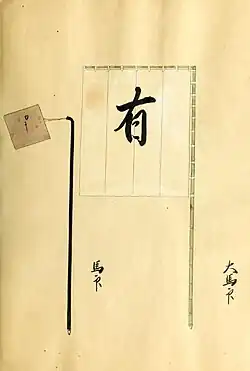 有
大馬印
馬印